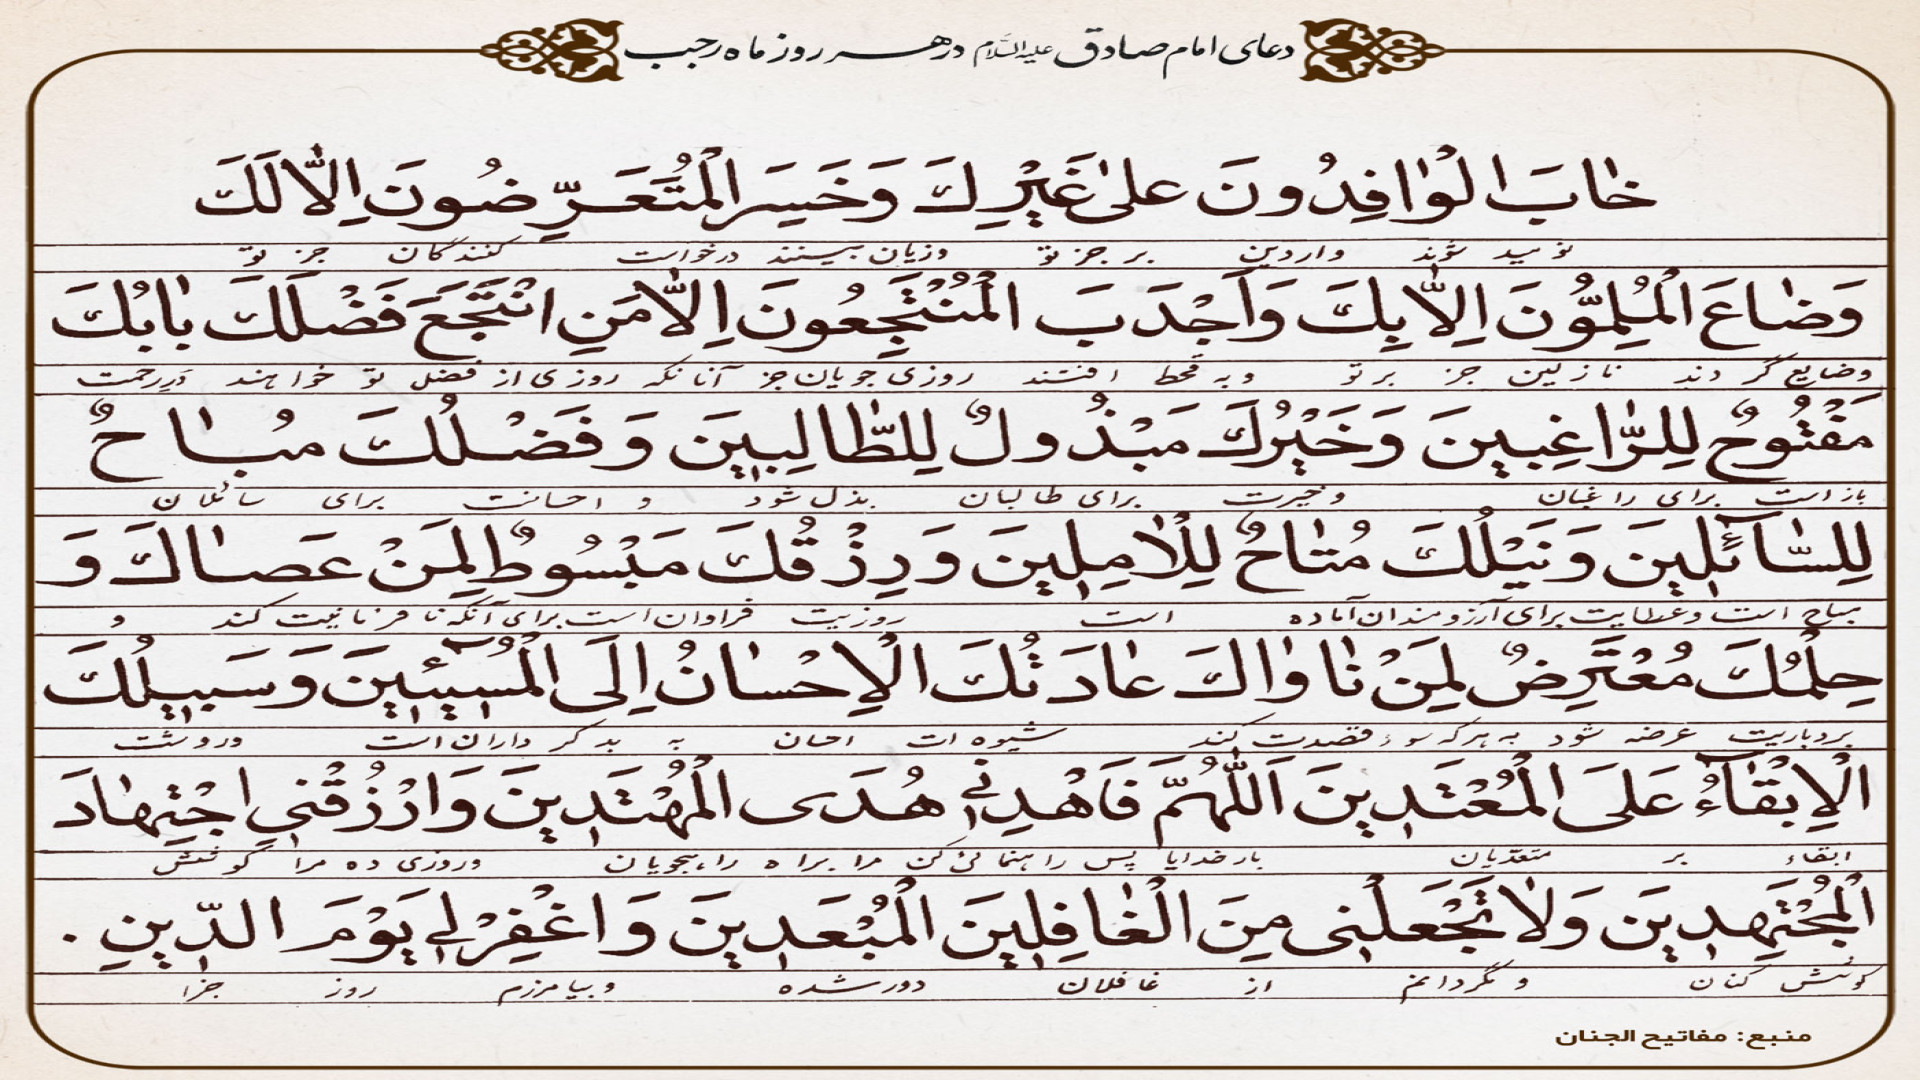 دعای امام صادق علیه‌السلام در هر روز ماه رجب
خٰابَ الْوٰافِدُونَ عَلىٰ غَيْرِكَ وَخَسِرَ الْمُتَعَرِّضُونَ اِلّٰا لَكَ
نومید شوند واردین بر جز تو وزیان بینند درخواست کنندگان جز تو
وَضٰاعَ الْمُلِمُّونَ اِلّٰا بِكَ وَاَجْدَبَ الْمُنْتَجِعُونَ اِلّٰا مَنِ انْتَجَعَ فَضْلَكَ بٰابُكَ
وضایع گردند نازلین جز برتو وبه قحط افتند روزی جویان جز آنانکه روزی از فضل تو خواهند دررحمت
مَفْتُوحٌ لِلرّٰاغِبينَ وَخَيْرُكَ مَبْذُولٌ لِلطّٰالِبينَ وَفَضْلُكَ مُبٰاحٌ
باز است برای راغبان وخیرت برای طالبان بذل شود و احسانت برای سائلان
لِلسّٰآئِلينَ وَنَيْلُكَ مُتٰاحٌ لِلْاٰمِلينَ وَرِزْقُكَ مَبْسُوطٌ لِمَنْ عَصٰاكَ وَ
مباح است وعطایت برای آرزومندان آماده است روزیت فراوان است برای آنکه نافرمانیت کند و
حِلْمُكَ مُعْتَرِضٌ لِمَنْ نٰاوٰاكَ عٰادَتُكَ الْاِحْسٰانُ اِلَى الْمُسيئينَ وَسَبيلُكَ
بردباریت عرضه شود به هرکه سوء قصدت کند شیوه ات احسان به بدکرداران است وروشت
الْاِبْقٰآءُ عَلَى الْمُعْتَدينَ اَللّٰهُمَّ فَاهْدِنى هُدَى الْمُهْتَدينَ وَارْزُقْنى اجْتِهٰادَ
ابقاء بر متعدّیان بارخدایا پس راهنمائی کن مرا براه راه‌جویان وروزی ده مرا کوشش
الْمُجْتَهِدينَ وَلٰا تَجْعَلْنى مِنَ الْغٰافِلينَ الْمُبْعَدينَ وَاغْفِرْلى يَوْمَ الدّينِ .
کوشش کنان و مگردانم از غافلان دورشده وبیامرزم روز جزا
منبع: مفاتیح الجنان